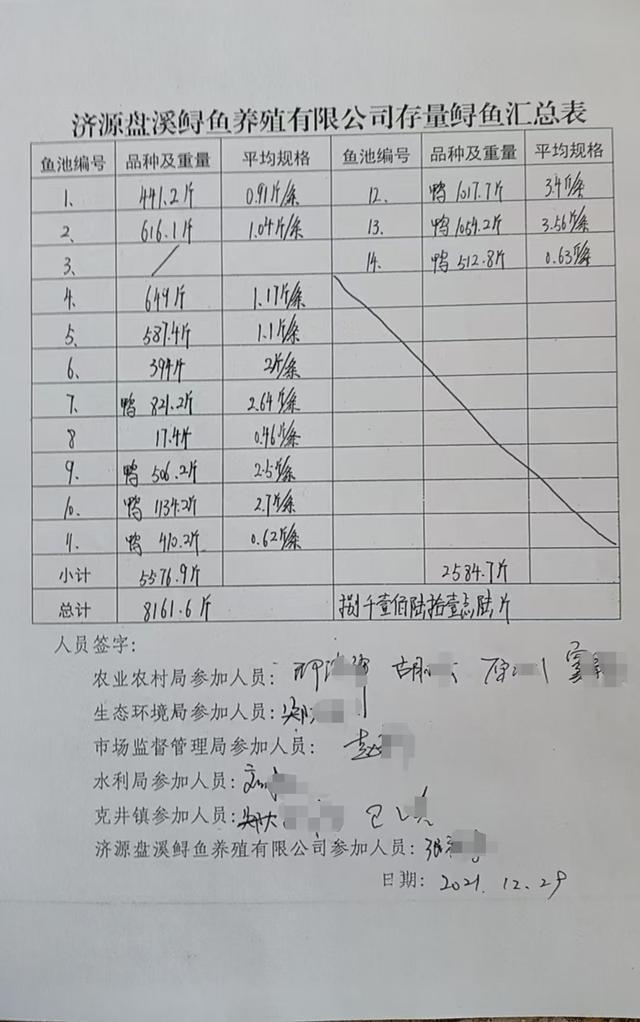 济源盘溪鲟鱼养殖有限公司存量鲟鱼汇总表
鱼池编号 品种及重量 平均规格 鱼池编号 品种及重量 平均规格
1、 441.2斤 0.91斤/条 12. 鸭 1017.7斤 3.4斤/条
2、 616.1斤 1.04斤/条 13. 鸭 1054.2斤 3.56斤/条
3、 / 14. 鸭 512.8斤 0.63斤/条
4、 649斤 1.17斤/条
5、 587.4斤 1.1斤/条
6、 394斤 2斤/条
7、 鸭 821.2斤 2.64斤/条
8 17.4斤 0.46斤/条
9、 鸭 506.2斤 2.5斤/条
10、 鸭 1134.2斤 2.7斤/条
11、 鸭 410.2斤 0.62斤/条
小计 5576.9斤 2584.7斤
总计 8161.6斤 捌千壹佰陆拾壹点陆斤
人员签字:
农业农村局参加人员: 胡
生态环境局参加人员:
市场监督管理局参加人员: 赵
水利局参加人员:
克井镇参加人员:
济源盘溪鲟鱼养殖有限公司参加人员: 张
日期: 2021.12.29